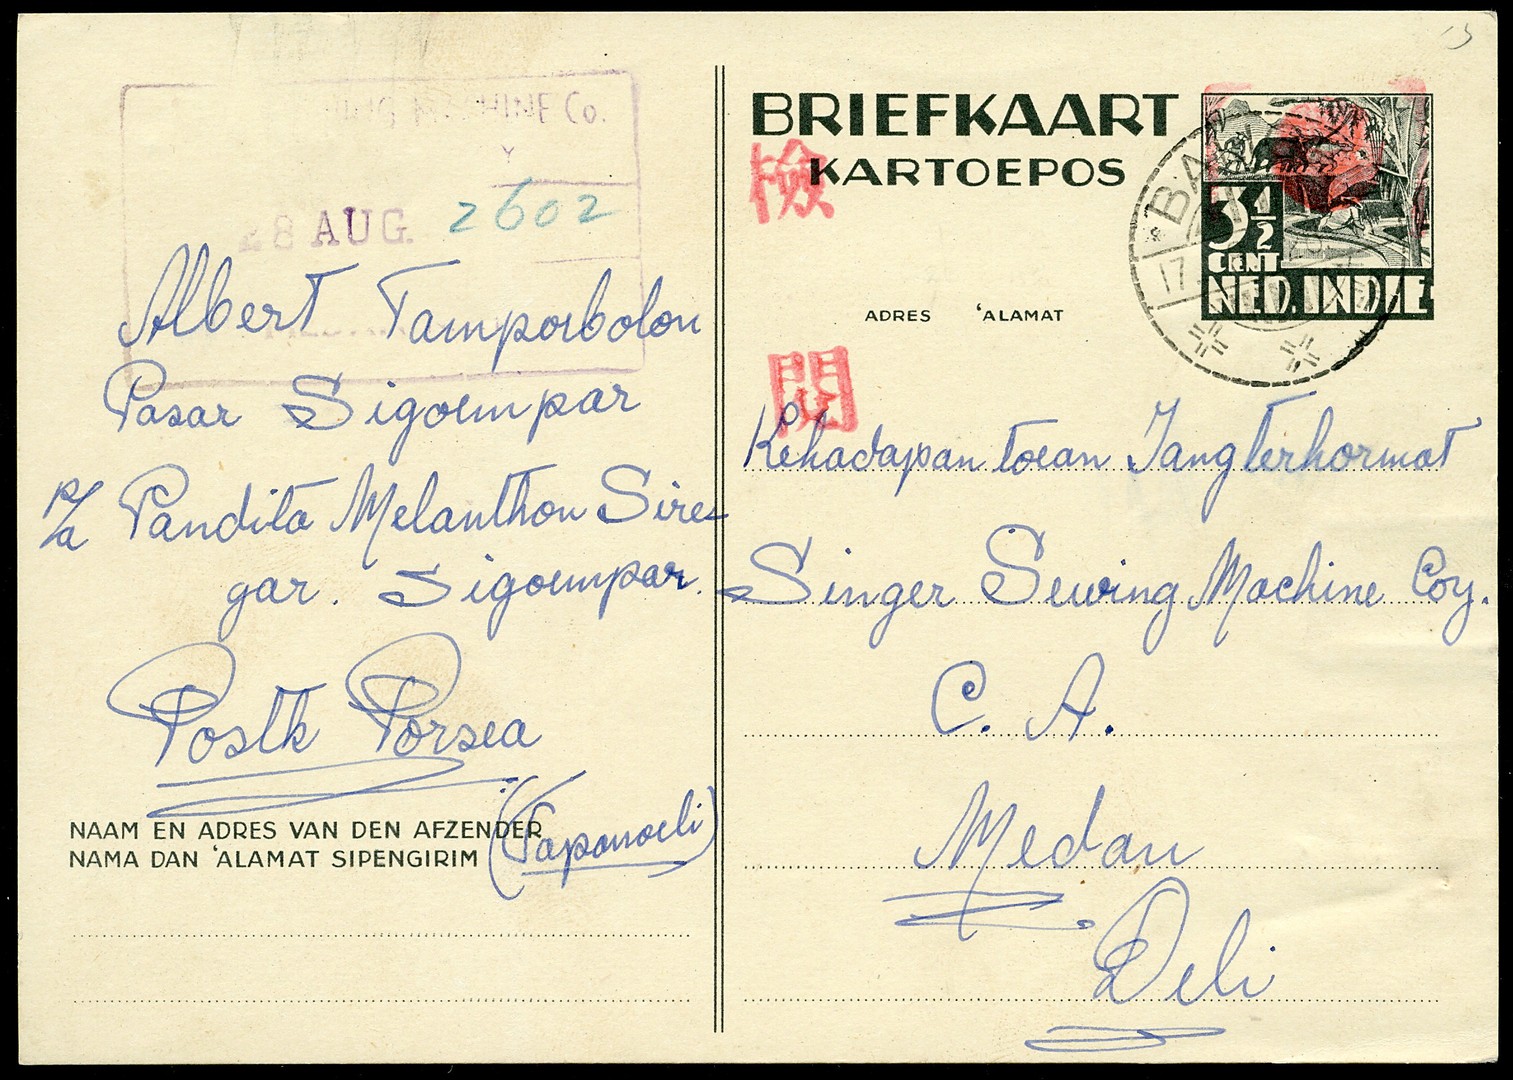 MACHINE Co.
Y
28 AUG. 2602
Albert Tamporbolon
Pasar Sigoempar
p/a Pandita Melanthon Sire-
gar. Sigoempar.
Postk Porsea
(Tapanoeli)
NAAM EN ADRES VAN DEN AFZENDER
NAMA DAN 'ALAMAT SIPENGIRIM
BRIEFKAART
KARTOEPOS
3½
CENT
NED. INDIE
BA
17
検
閲
ADRES 'ALAMAT
Kehadapan toean Jangterhormat
Singer Sewing Machine Coy.
C. A.
Medan
Deli